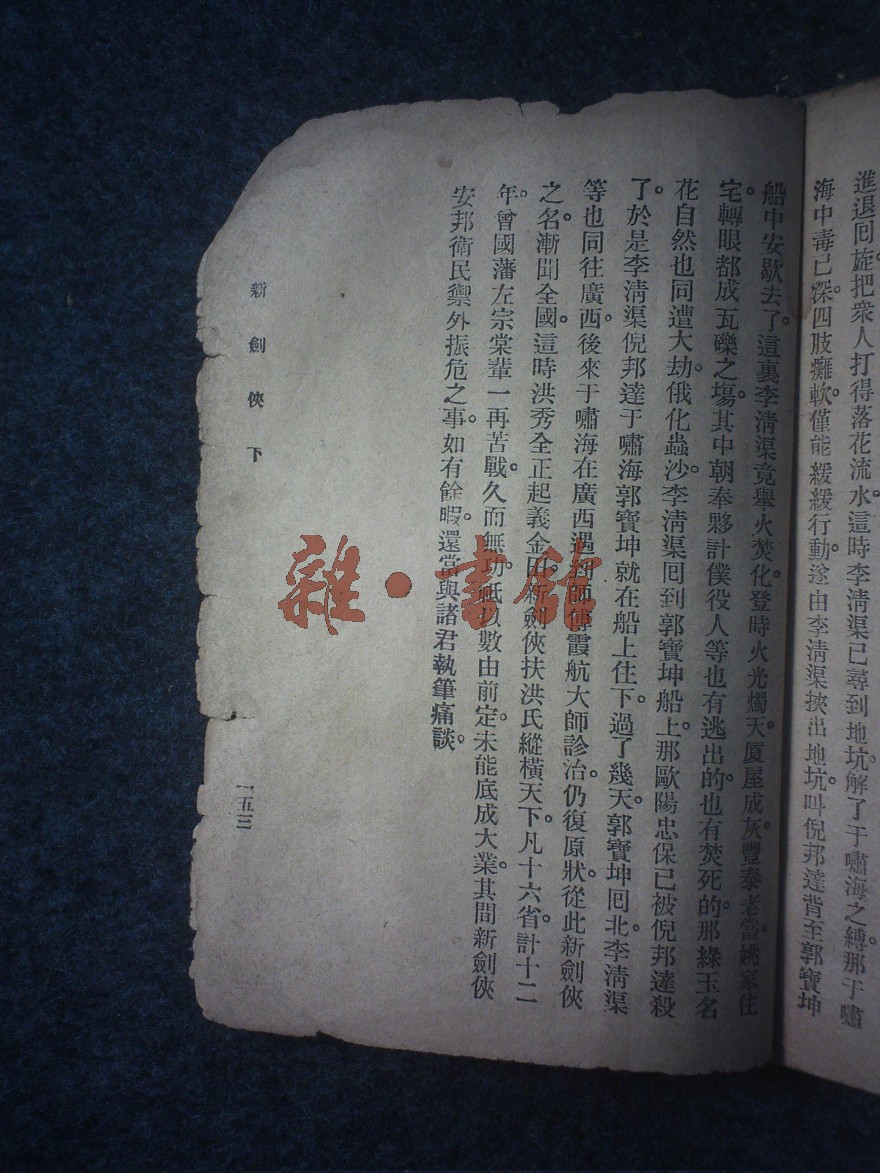 進退囘旋。把衆人打得落花流水。這時李淸渠已尋到地坑。解了于嘯海之縛。那于嘯
海中毒已深。四肢癱軟。僅能緩緩行動。遂由李淸渠挾出地坑。叫倪邦達背至郭寶坤
船中安歇去了。這裏李淸渠竟舉火焚化。登時火光燭天。厦屋成灰。豐泰老當。姚家住
宅。轉眼都成瓦礫之塲。其中朝奉夥計僕役人等。也有逃出的。也有焚死的。那綠玉名
花。自然也同遭大劫。俄化蟲沙。李淸渠囘到郭寶坤船上。那歐陽忠保已被倪邦達殺
了。於是李淸渠倪邦達于嘯海郭寶坤就在船上住下。過了幾天。郭寶坤囘北。李淸渠
等也同往廣西。後來于嘯海在廣西遇到師傅霞航大師診治。仍復原狀。從此新劍俠
之名。漸聞全國。這時洪秀全正起義金田。新劍俠扶洪氏縱橫天下。凡十六省。計十二
年。曾國藩左宗棠輩一再苦戰。久而無功。祗以數由前定。未能底成大業。其間新劍俠
安邦衞民禦外振危之事。如有餘暇。還當與諸君執筆痛談。
新劍俠 下
一五三
雜·書館